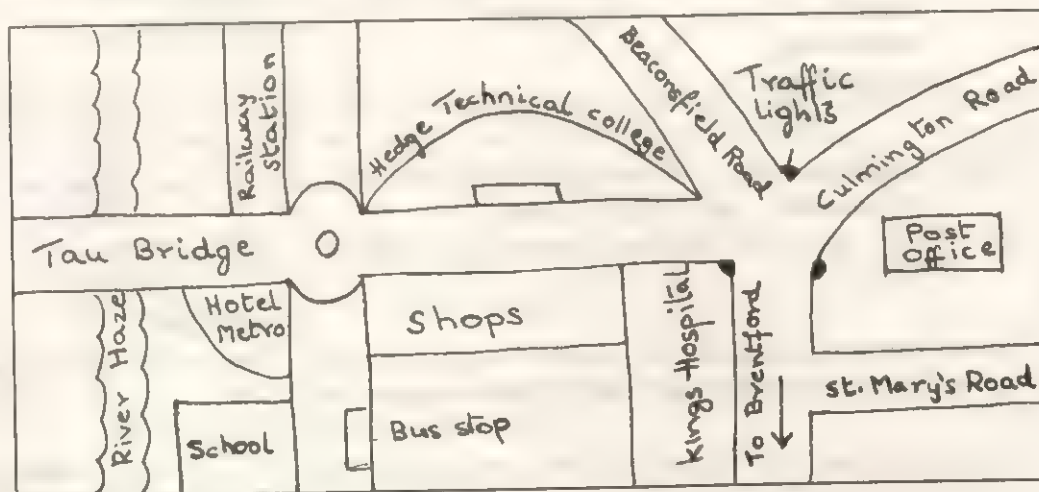 Railway
station
Hedge Technical college
Beaconsfield Road
Traffic
lights
Culmington Road
Post
office
Tau Bridge
Hotel
Metro
Shops
Kings Hospital
To Brentford
St. Mary's Road
River Haze
School
Bus stop